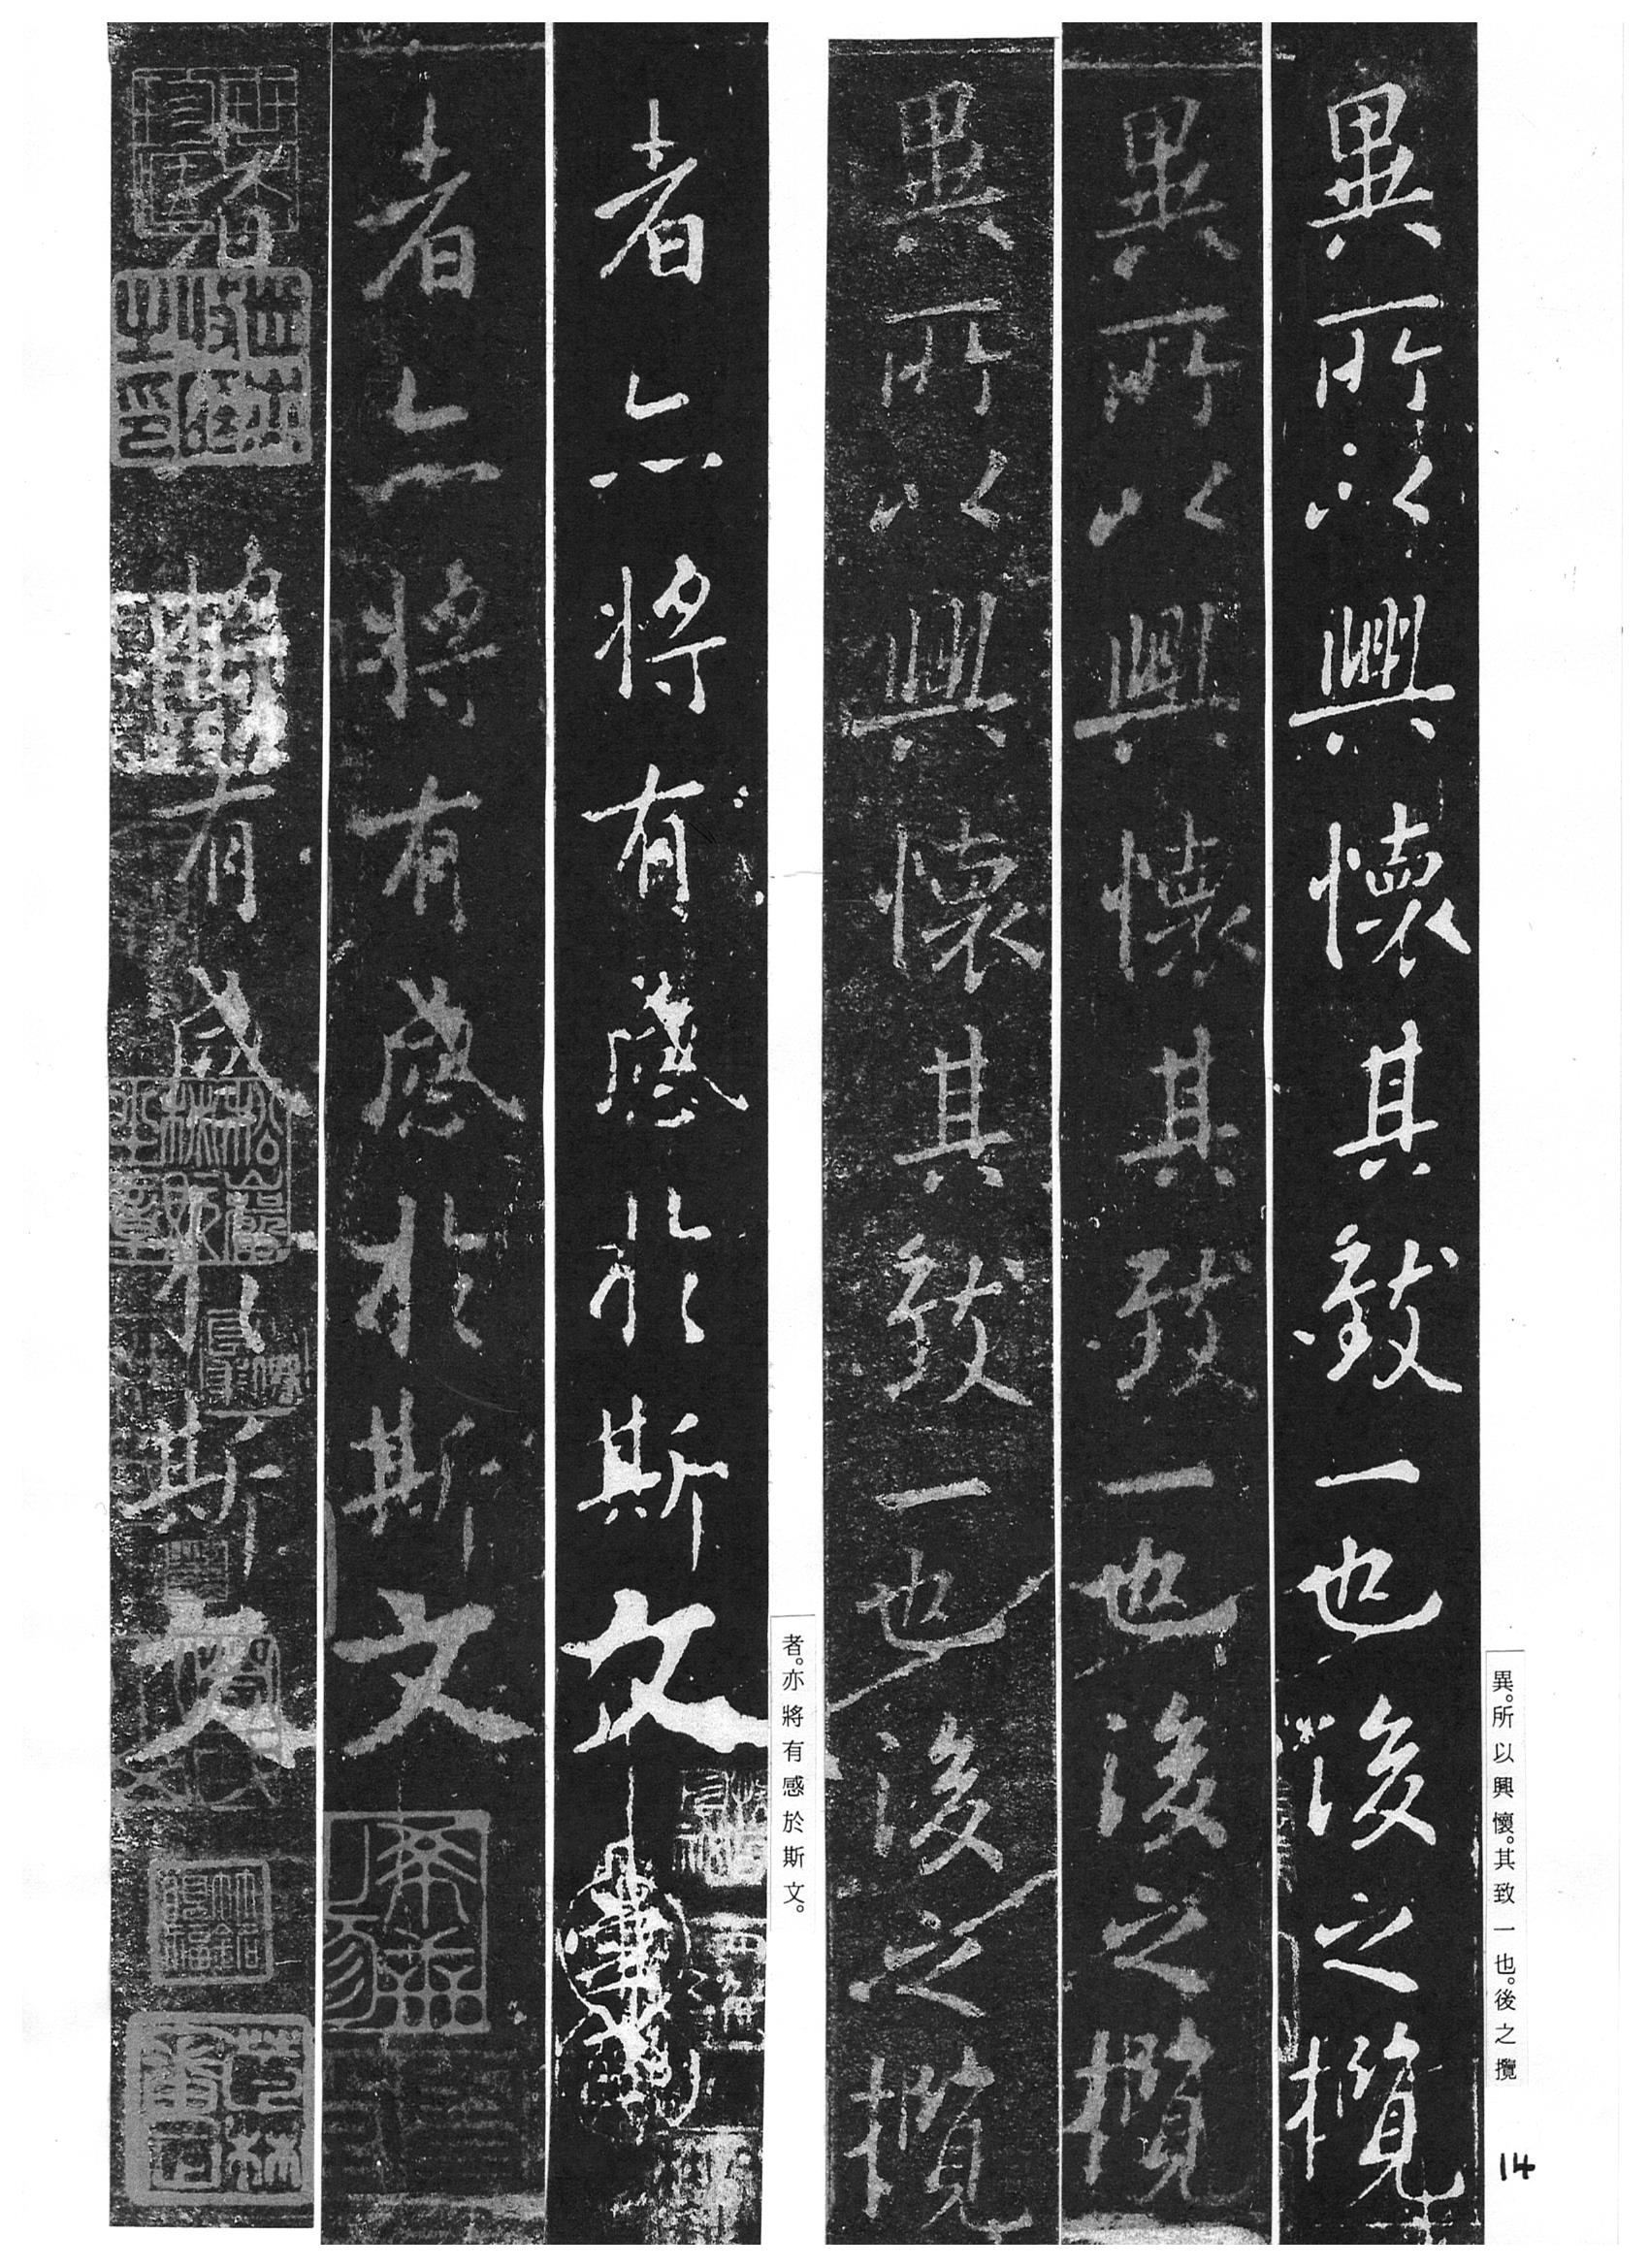 異所以興懷其致一也後之攬
異所以興懷其致一也後之攬
異所以興懷其致一也後之攬
異。所以興懷。其致一也。後之攬
14
者亦將有感於斯文
者亦將有感於斯文
者 將有感於斯文
者。亦將有感於斯文。